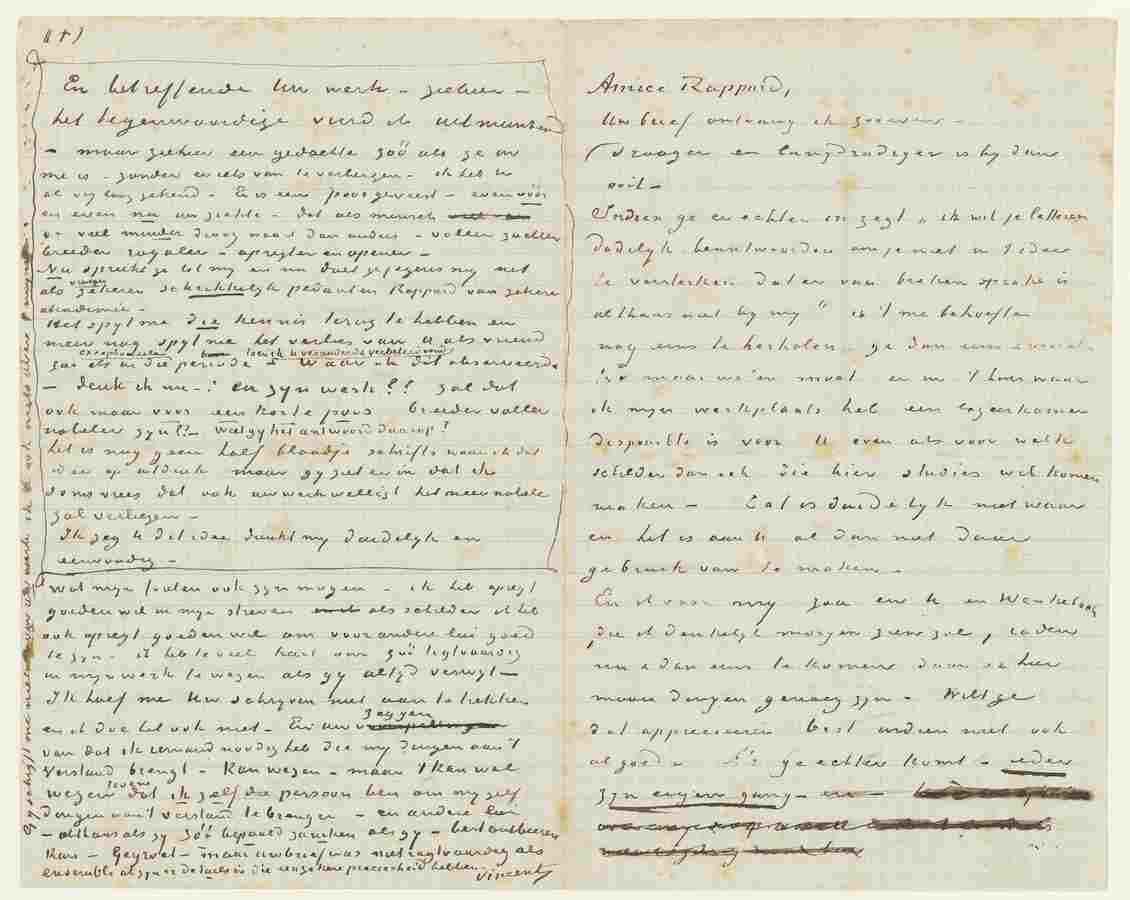 En betreffende Uw werk – zichier –
het tegenwoordige vind ik uitmuntend
– maar ziehier een gedachte zóó als ze in
me is – zonder er iets van te verbergen – ik heb U
al vrij lang gekend. Er is een poos geweest – even vóór
en even na uw ziekte – dat als mensch
ge veel minder droog waart dan anders – voller zachter
breeder royaler – opregter en opener –
Nu spreekt ge tot my en nu doet ge jegens my net
als zekeren verschrikkelyk pedanten Rappard van zekere
akademie –
Het spyt me die kennis terug te hebben en
meer nog spyt me het verlies van U als vriend
zoo als in die periode – Waar ik dit observeerde
exceptioneelen toen ik U veranderde verbeterd vond
– denk ik me –: en zyn werk?? zal dat
ook maar voor een korte poos breeder voller
nobeler zyn??– Wat is het antwoord daarop?
het is nog geen half blaadje schrifts waar ik dit
idee op uitdruk maar gy ziet er in dat ik
soms vrees dat ook uw werk wellicht het meer nobele
zal verliezen –
Ik zeg U dit idee dunkt my duidelyk en
eenvoudig –
Wat myn fouten ook zyn mogen – ik heb opregt
goeden wil in myn streven als schilder ik heb
ook opregt goeden wil om voor andere lui goed
te zyn – ik heb te veel hart om zóó ligtvaardig
in myn werk te wezen als gy altyd verwyt –
Ik hoef me Uw schryven niet aan te trekken
en ik doe het ook niet – En uw zeggen
van dat ik iemand noodig heb die my dingen aan 't
verstand brengt – Kan wezen – maar 't kan wel
wezen tevens dat ik zelf de persoon ben om my zelf
dingen aan 't verstand te brengen – en andere lui
– althans als zy zóó bepaald zaniken als gy – best ontbeeren
kan – Gegroet – maar uw brief was niet regtvaardig als
ensemble al zyn er details in die een zekere preciesheid hebben
Vincent
Gy schryft me niets van uw werk ik U ook niets over 't myne
Amice Rappard,
Uw brief ontvang ik zooeven –
Droger en langdradiger is hy dan
ooit –
Indien ge er echter in zegt „ik wil je letteren
dadelyk beantwoorden om je niet in 't idee
te versterken dat er van breken sprake is
althans niet by my” is 't me behoefte
nog eens te herholen
maar
ik myn werkplaats heb een logeerkamer
disponible is voor U even als voor welk
schilder dan ook die hier studies wil komen
maken – Dat is duidelyk niet waar
en het is aan U al dan niet daar
gebruik van te maken –
En wat voor my zoo en U en Wenkebach
die ik denkelyk morgen zien zal, raden
om dan eens te komen daar er hier
mooie dingen genoeg zyn – Wilt ge
dat apprecieeren best indien niet ook
al goed – Als ge echter komt – ieder
zyn eigen gang – en –